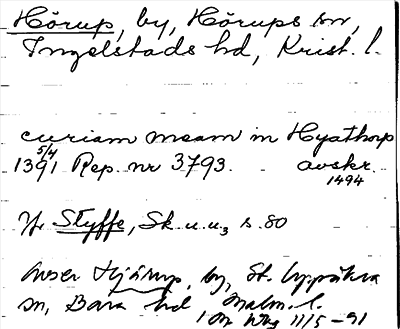 Hörup, by, Hörups sn,
Ingelstads hd, Krist. l.
curiam meam in Hyathorp
5/4
1391 Rep. nr 3793. avskr.
1494
Jfr Styffe, Sk. u. u3 s. 80
avser Hjärup, by, St. Uppåkra
sn, Bara hd Malm. l.
11/5 -91